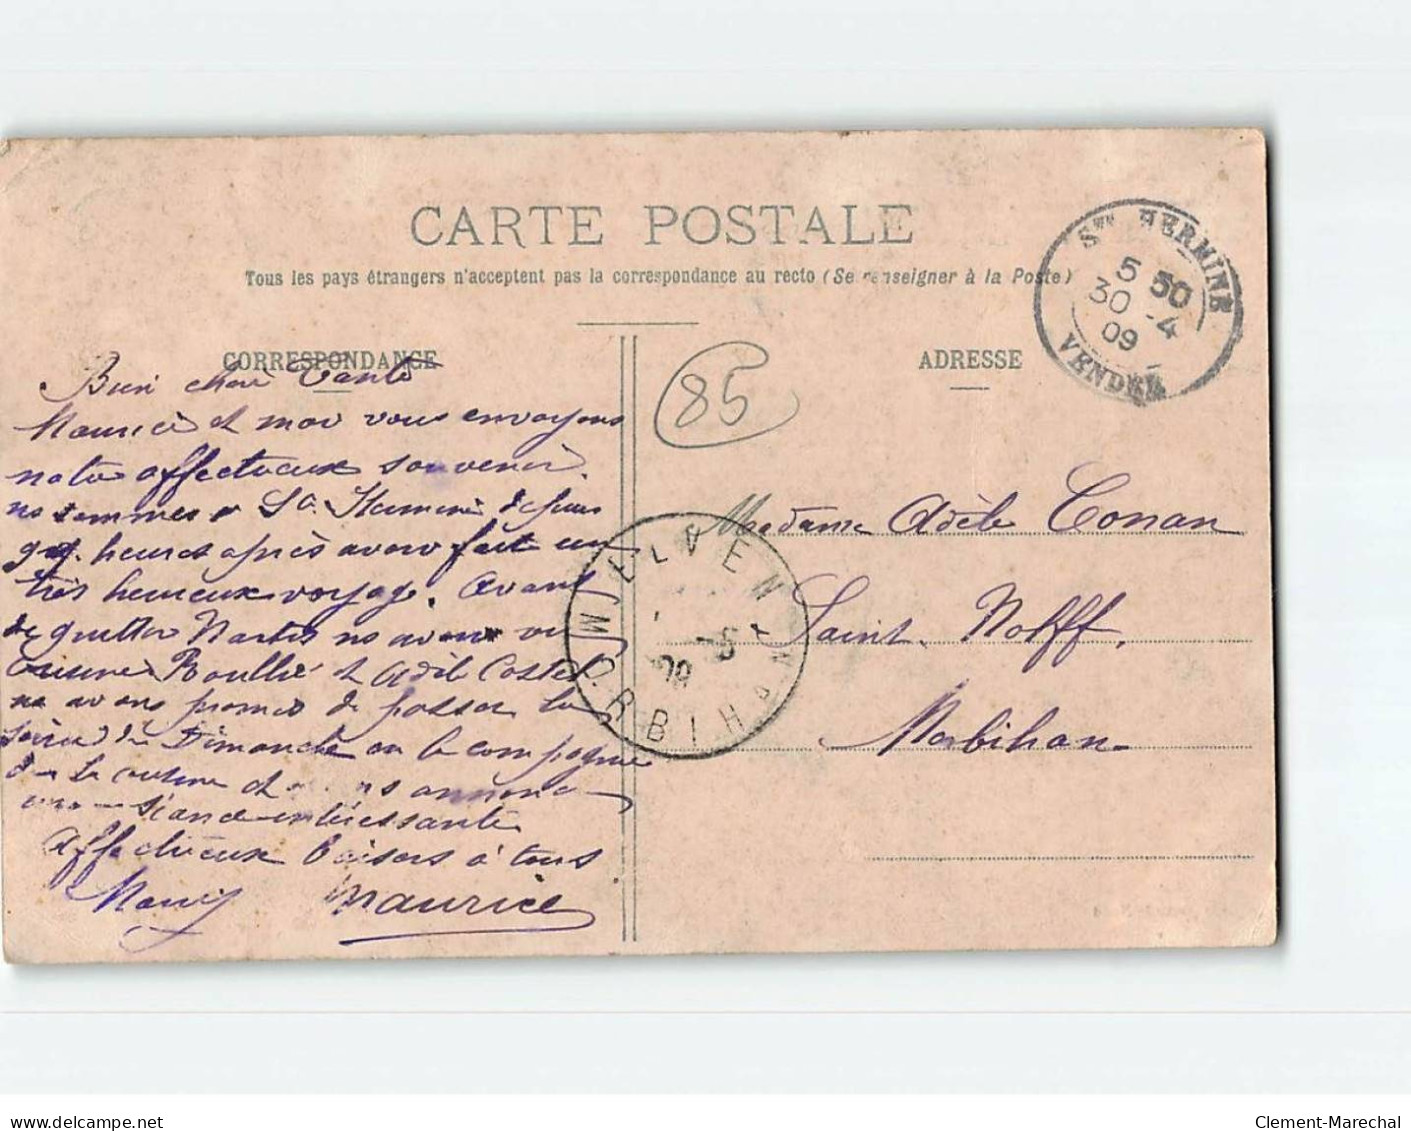 CARTE POSTALE
Tous les pays étrangers n'acceptent pas la correspondance au recto (Se renseigner à la Poste)
CORRESPONDANCE
ADRESSE
Ste HERMINE
5 50
30 -4
09
VENDÉE
85
Bien chère Tante
Maurice et moi vous envoyons
notre affectueux souvenir.
ns sommes a Ste Hermine depuis
qq. heures après avoir fait un
très heureux voyage. Avant
de quitter Nantes ns avons vu
cousine Boullé et Adèle Costel
ns avons promis de passer la
soirée de Dimanche en la compagnie
de la cousine et
séance intéressante
affectueux baisers à tous
Maurice
Madame Adèle Conan
Saint. Nolff.
Morbihan
ELVEN
09
MORBIHAN
www.delcampe.net
Clement-Marechal